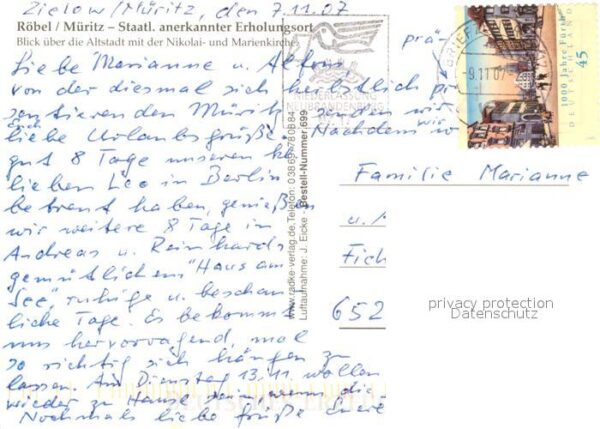 Zielow/Müritz, den 7.11.07
Röbel / Müritz – Staatl. anerkannter Erholungsort
Blick über die Altstadt mit der Nikolai- und Marienkirche
Liebe Marianne u. Alfons
von der diesmal sich herbstlich prä-
sentierenden Müritz senden wir
Euch
liebe Urlaubsgrüße. Nachdem wir
gut 8 Tage unseren
lieben Leo in Berlin
betreut haben, genießen
wir weitere 8 Tage in
Andreas u. Reinhards
gemütlichem "Haus am
See", ruhige u. beschau-
liche Tage. Es bekommt
uns hervorragend, mal
so richtig sich hängen zu
lassen. Am Dienstag 13.11. wollen
wieder zu Hause sein,
Nochmals liebe Grüße Eure
www.radke-verlag.de, Telefon: 03869/780884
Luftaufnahme: J. Eicke - Bestell-Nummer 699
NEUBRANDENBURG
BRIEFZ
-9.11.07
1000 Jahre Fürth
DEUTSCHLAND
45
Familie Marianne
u. A
Fich
652
privacy protection
Datenschutz